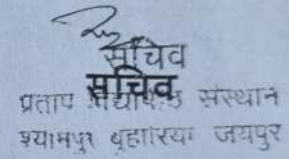 सचिव
सचिव
प्रताप संस्थान
श्यामपुर बुहारिया जयपुर